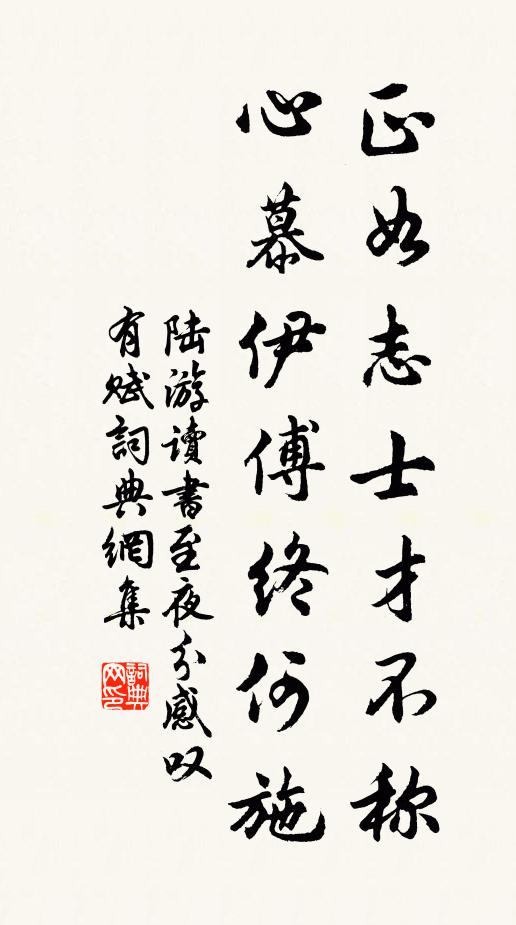 正如志士才不称
心慕伊傅终何施
陆游讀書至夜分感叹
有赋詞典網集
詞典网印